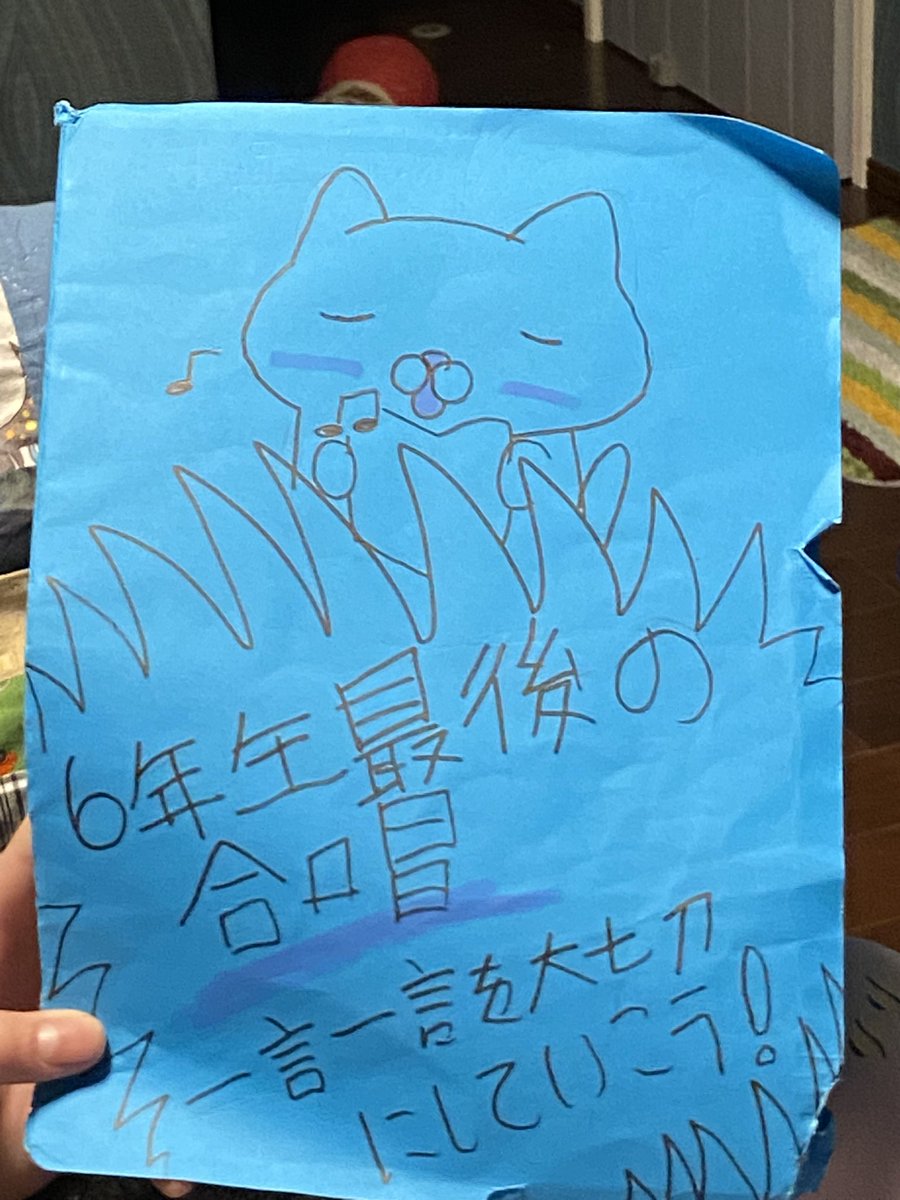 6年生最後の
合唱
一言一言を大切
にしていこう!